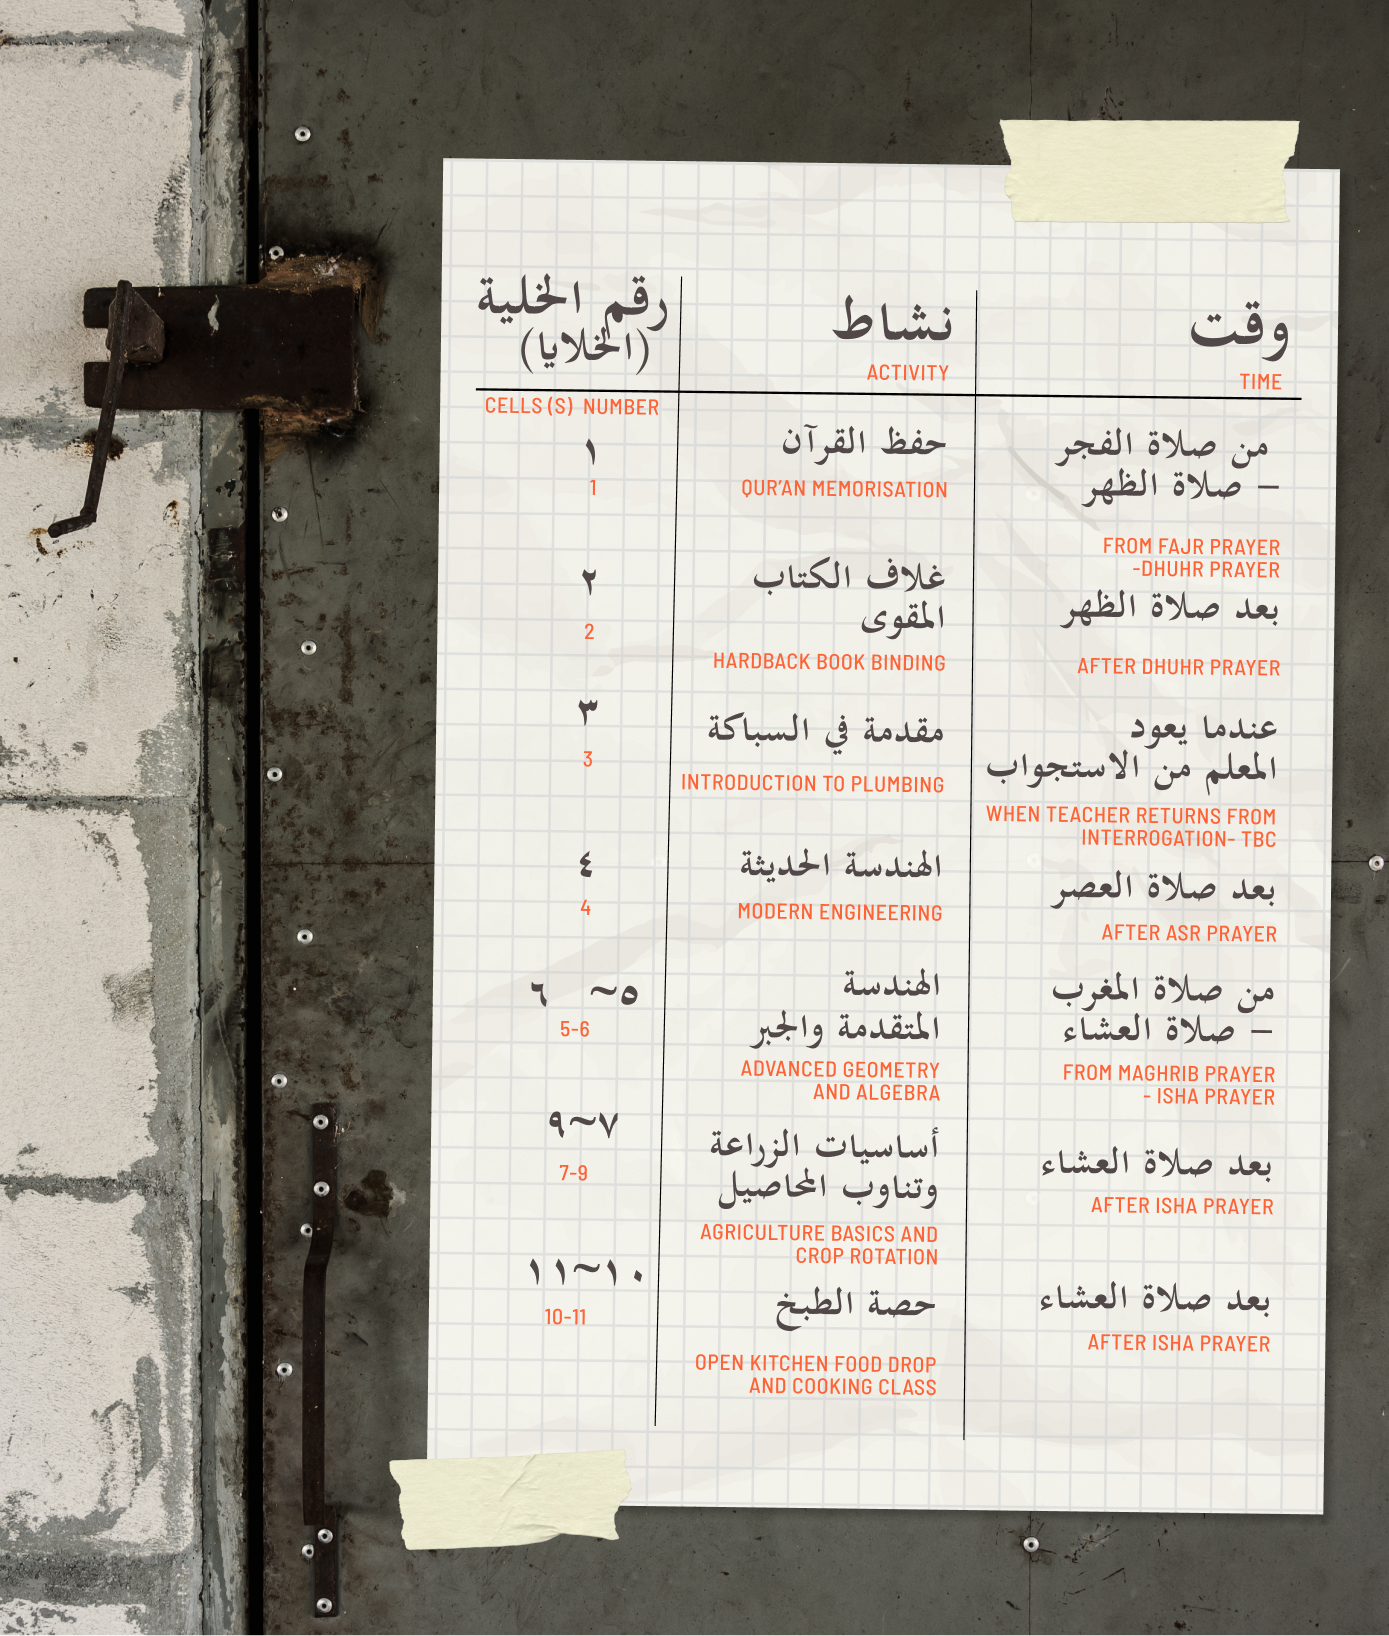 وقت
TIME
نشاط
ACTIVITY
رقم الخلية
(الخلايا)
CELLS (S) NUMBER
من صلاة الفجر
– صلاة الظهر
FROM FAJR PRAYER
-DHUHR PRAYER
حفظ القرآن
QUR'AN MEMORISATION
١
1
بعد صلاة الظهر
AFTER DHUHR PRAYER
غلاف الكتاب
المقوى
HARDBACK BOOK BINDING
٢
2
عندما يعود
المعلم من الاستجواب
WHEN TEACHER RETURNS FROM
INTERROGATION- TBC
مقدمة في السباكة
INTRODUCTION TO PLUMBING
٣
3
بعد صلاة العصر
AFTER ASR PRAYER
الهندسة الحديثة
MODERN ENGINEERING
٤
4
من صلاة المغرب
– صلاة العشاء
FROM MAGHRIB PRAYER
- ISHA PRAYER
الهندسة
المتقدمة والجبر
ADVANCED GEOMETRY
AND ALGEBRA
٥~ ٦
5-6
بعد صلاة العشاء
AFTER ISHA PRAYER
أساسيات الزراعة
وتناوب المحاصيل
AGRICULTURE BASICS AND
CROP ROTATION
٧~٩
7-9
بعد صلاة العشاء
AFTER ISHA PRAYER
حصة الطبخ
OPEN KITCHEN FOOD DROP
AND COOKING CLASS
١٠~١١
10-11